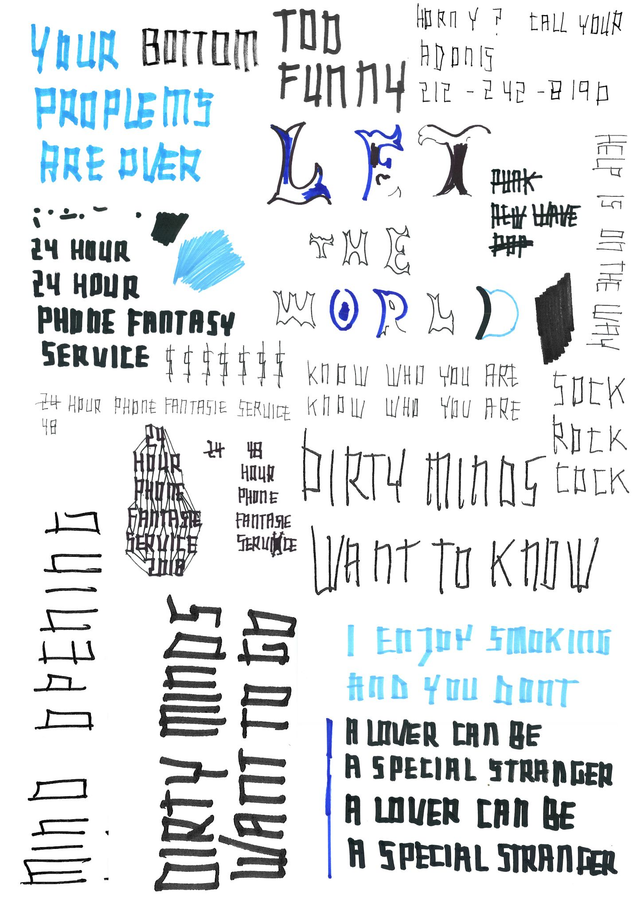 YOUR BOTTOM
PROPLEMS
ARE OVER
TOO
FUNNY
HORNY? CALL YOUR
ADONIS
212-242-8190
LET
THE
WORLD
PUNK
NEW WAVE
POP
HELP IS ON THE WAY
24 HOUR
24 HOUR
PHONE FANTASY
SERVICE $$$$$$$
KNOW WHO YOU ARE
KNOW WHO YOU ARE
24 HOUR PHONE FANTASIE SERVICE
48
SOCK
ROCK
COCK
24
HOUR
PHONE
FANTASIE
SERVICE
2018
24 48
HOUR
PHONE
FANTASIE
SERVICE
DIRTY MINDS
WANT TO KNOW
MIND OPENING
DIRTY MINDS
WANT TO GO
I ENJOY SMOKING
AND YOU DONT
A LOVER CAN BE
A SPECIAL STRANGER
A LOVER CAN BE
A SPECIAL STRANGER